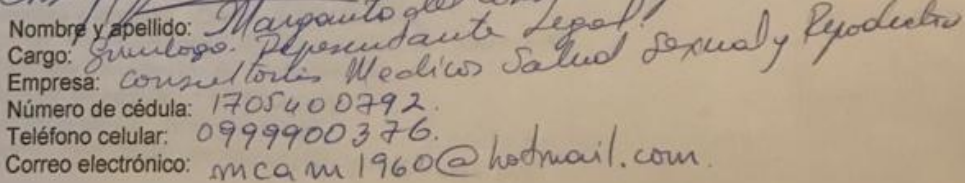 Nombre y apellido: Margarita del
Cargo: Representante Legal.
Empresa: Consultorios Medicos Salud Sexual y Reproductiva
Número de cédula: 1705400792.
Teléfono celular: 0999900376.
Correo electrónico: mcam1960@hotmail.com.